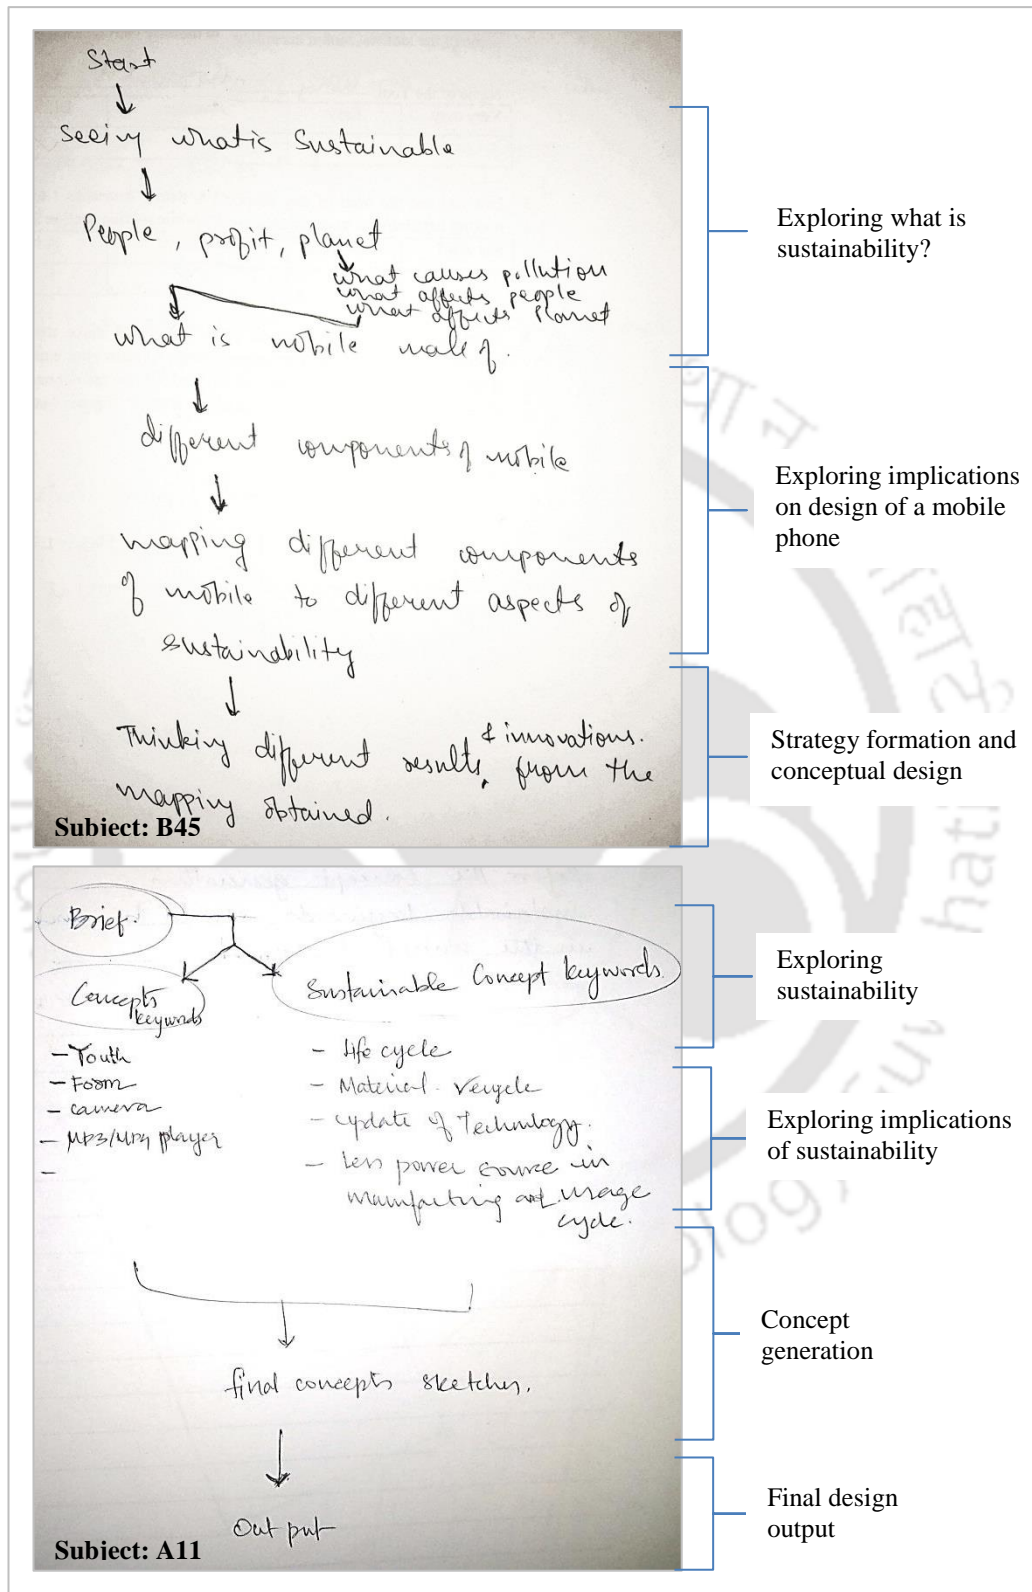 Start
Seeing what is Sustainable
People, profit, planet
what causes pollution
what affects people
what affects Planet
what is mobile made of.
different components of mobile
mapping different components
of mobile to different aspects of
sustainability
& innovations.
Thinking different results from the
mapping obtained.
Subject: B45
Exploring what is
sustainability?
Exploring implications
on design of a mobile
phone
Strategy formation and
conceptual design
Brief.
Concepts
keywords
- Youth
- Form
- camera
- MP3/MP4 player
-
Sustainable Concept keywords
- life cycle
- Material recycle
- update of Technology.
- less power source in
manufacturing and usage
cycle.
final concepts sketches.
Out put
Subject: A11
Exploring
sustainability
Exploring implications
of sustainability
Concept
generation
Final design
output